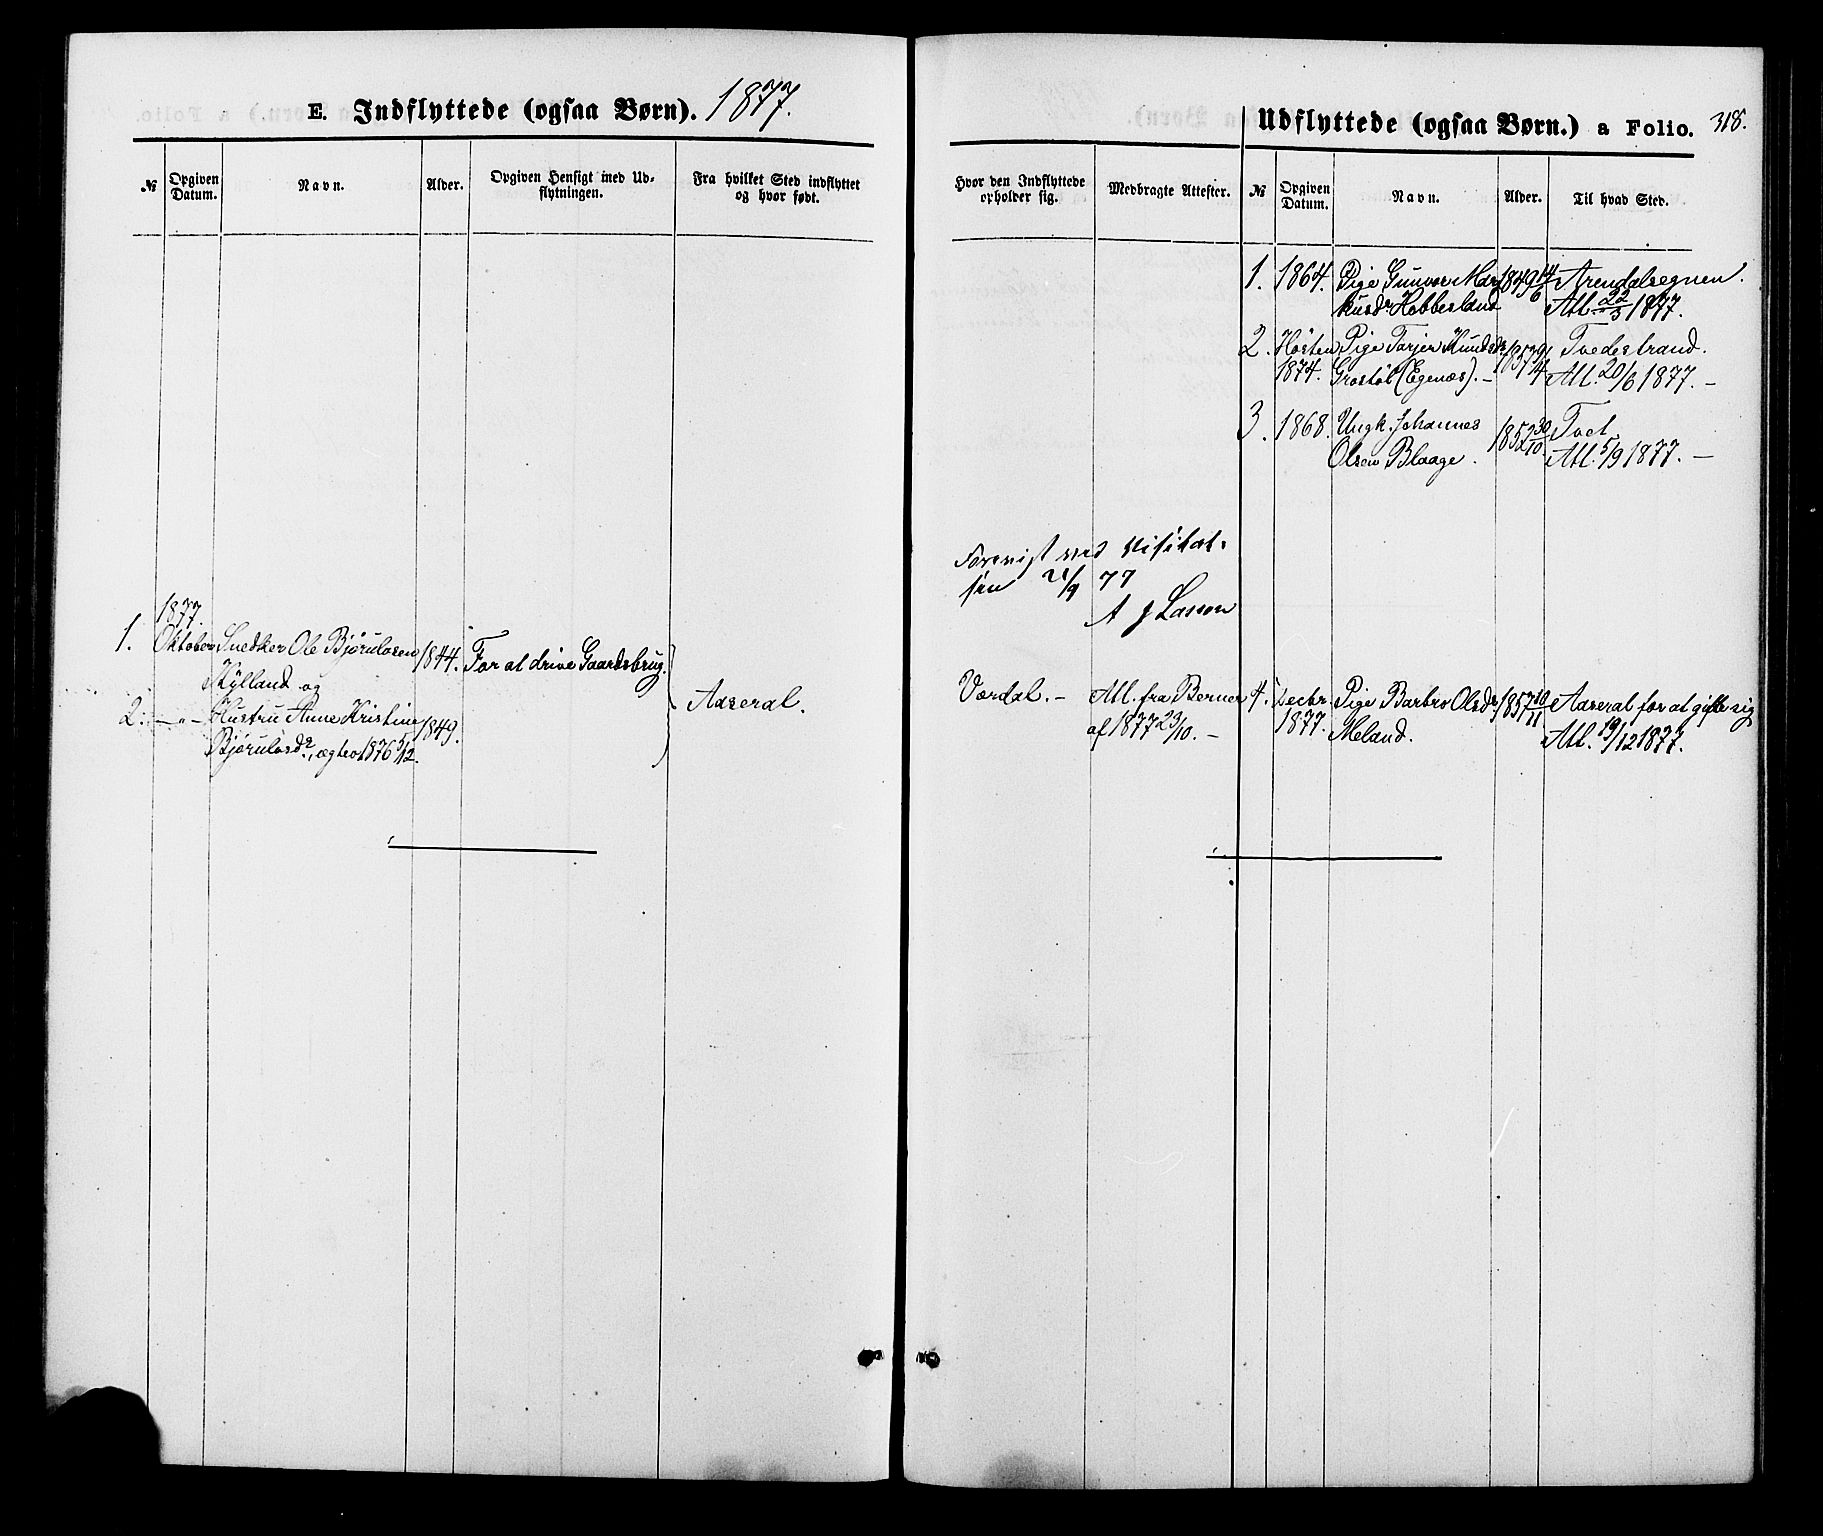 E. Indflyttede (ogsaa Børn). 1877.
№
Opgiven Datum.
Navn.
Alder.
Opgiven Hensigt med Ud-
flytningen.
Fra hvilket Sted indflyttet
og hvor født.
1877.
1. Oktober Snedker Ole Bjørulvsen 1844. For at drive Gaardsbrug.
Kylland og
Aaseral.
2. —„— Hustru Anne Kristine 1849.
Bjørulvsdr., ægtev. 1876 5/12.
Udflyttede (ogsaa Børn.) a Folio. 318.
Hvor den Indflyttede
opholder sig.
Medbragte Attester.
№
Opgiven Datum.
Navn.
Alder.
Til hvad Sted.
1. 1864. Pige Gunvor Mar- 1849 14/6 Arendalsegnen.
kusdr Hobbesland Att. 22/3 1877.
2. Høsten Pige Tarjer Knudsdr 1857 Tvedestrand.
1874. Grostøl (Egenæs). — Att. 20/6 1877. —
3. 1868. Ungk. Johannes 1852 30/10. Tvet.
Olsen Blaage. Att. 5/9 1877. —
Forevist ved Visitat-
sen 21/9 77
A J Lasson
Værdal. — Att. fra Berner 4. Decbr. Pige Barbro Olsdr 1857 10/11 Aaseral for at gifte sig
af 1877 23/10. — 1877. Meland. Att. 19/12 1877.